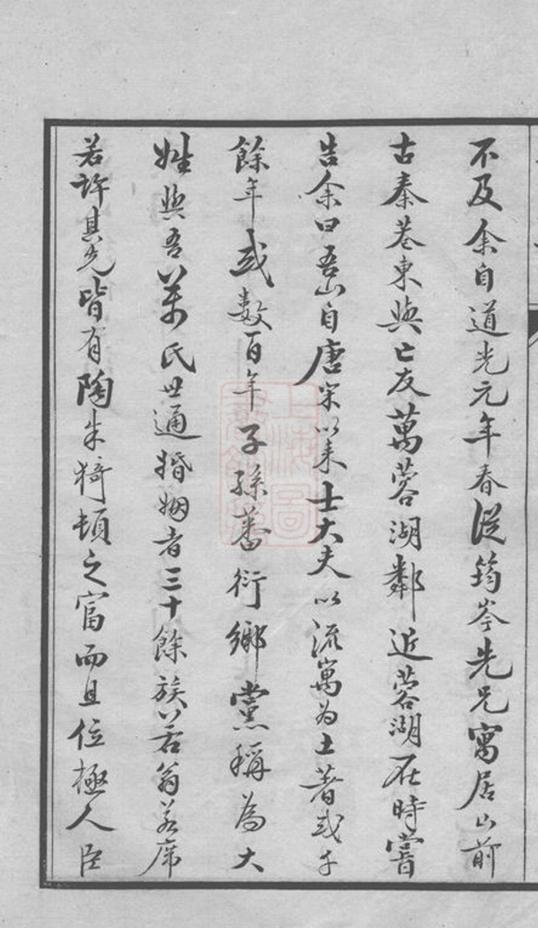 不及余自道光元年春從筠岑先兄寓居山前
古秦巷東與亡友萬蓉湖鄰近蓉湖在時嘗
告余曰吾山自唐宋以来士大夫以流寓為土著或千
餘年或數百年子孫蕃衍鄉黨稱為大
姓與吾萬氏世通婚姻者三十餘族以若翁若席
若許其先皆有陶朱猗頓之富而且位極人臣
上海圖